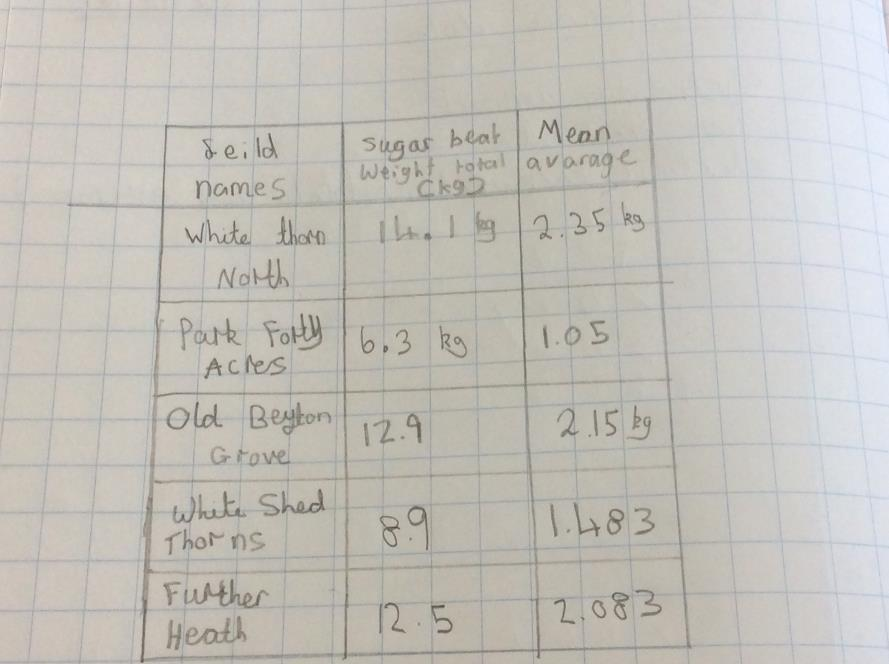 feild names sugar beat Weight total (kg) Mean avarage
White thorn North 14.1 kg 2.35 kg
Park Forty Acres 6.3 kg 1.05
Old Beyton Grove 12.9 2.15 kg
White Shed Thorns 8.9 1.483
Further Heath 12.5 2.083